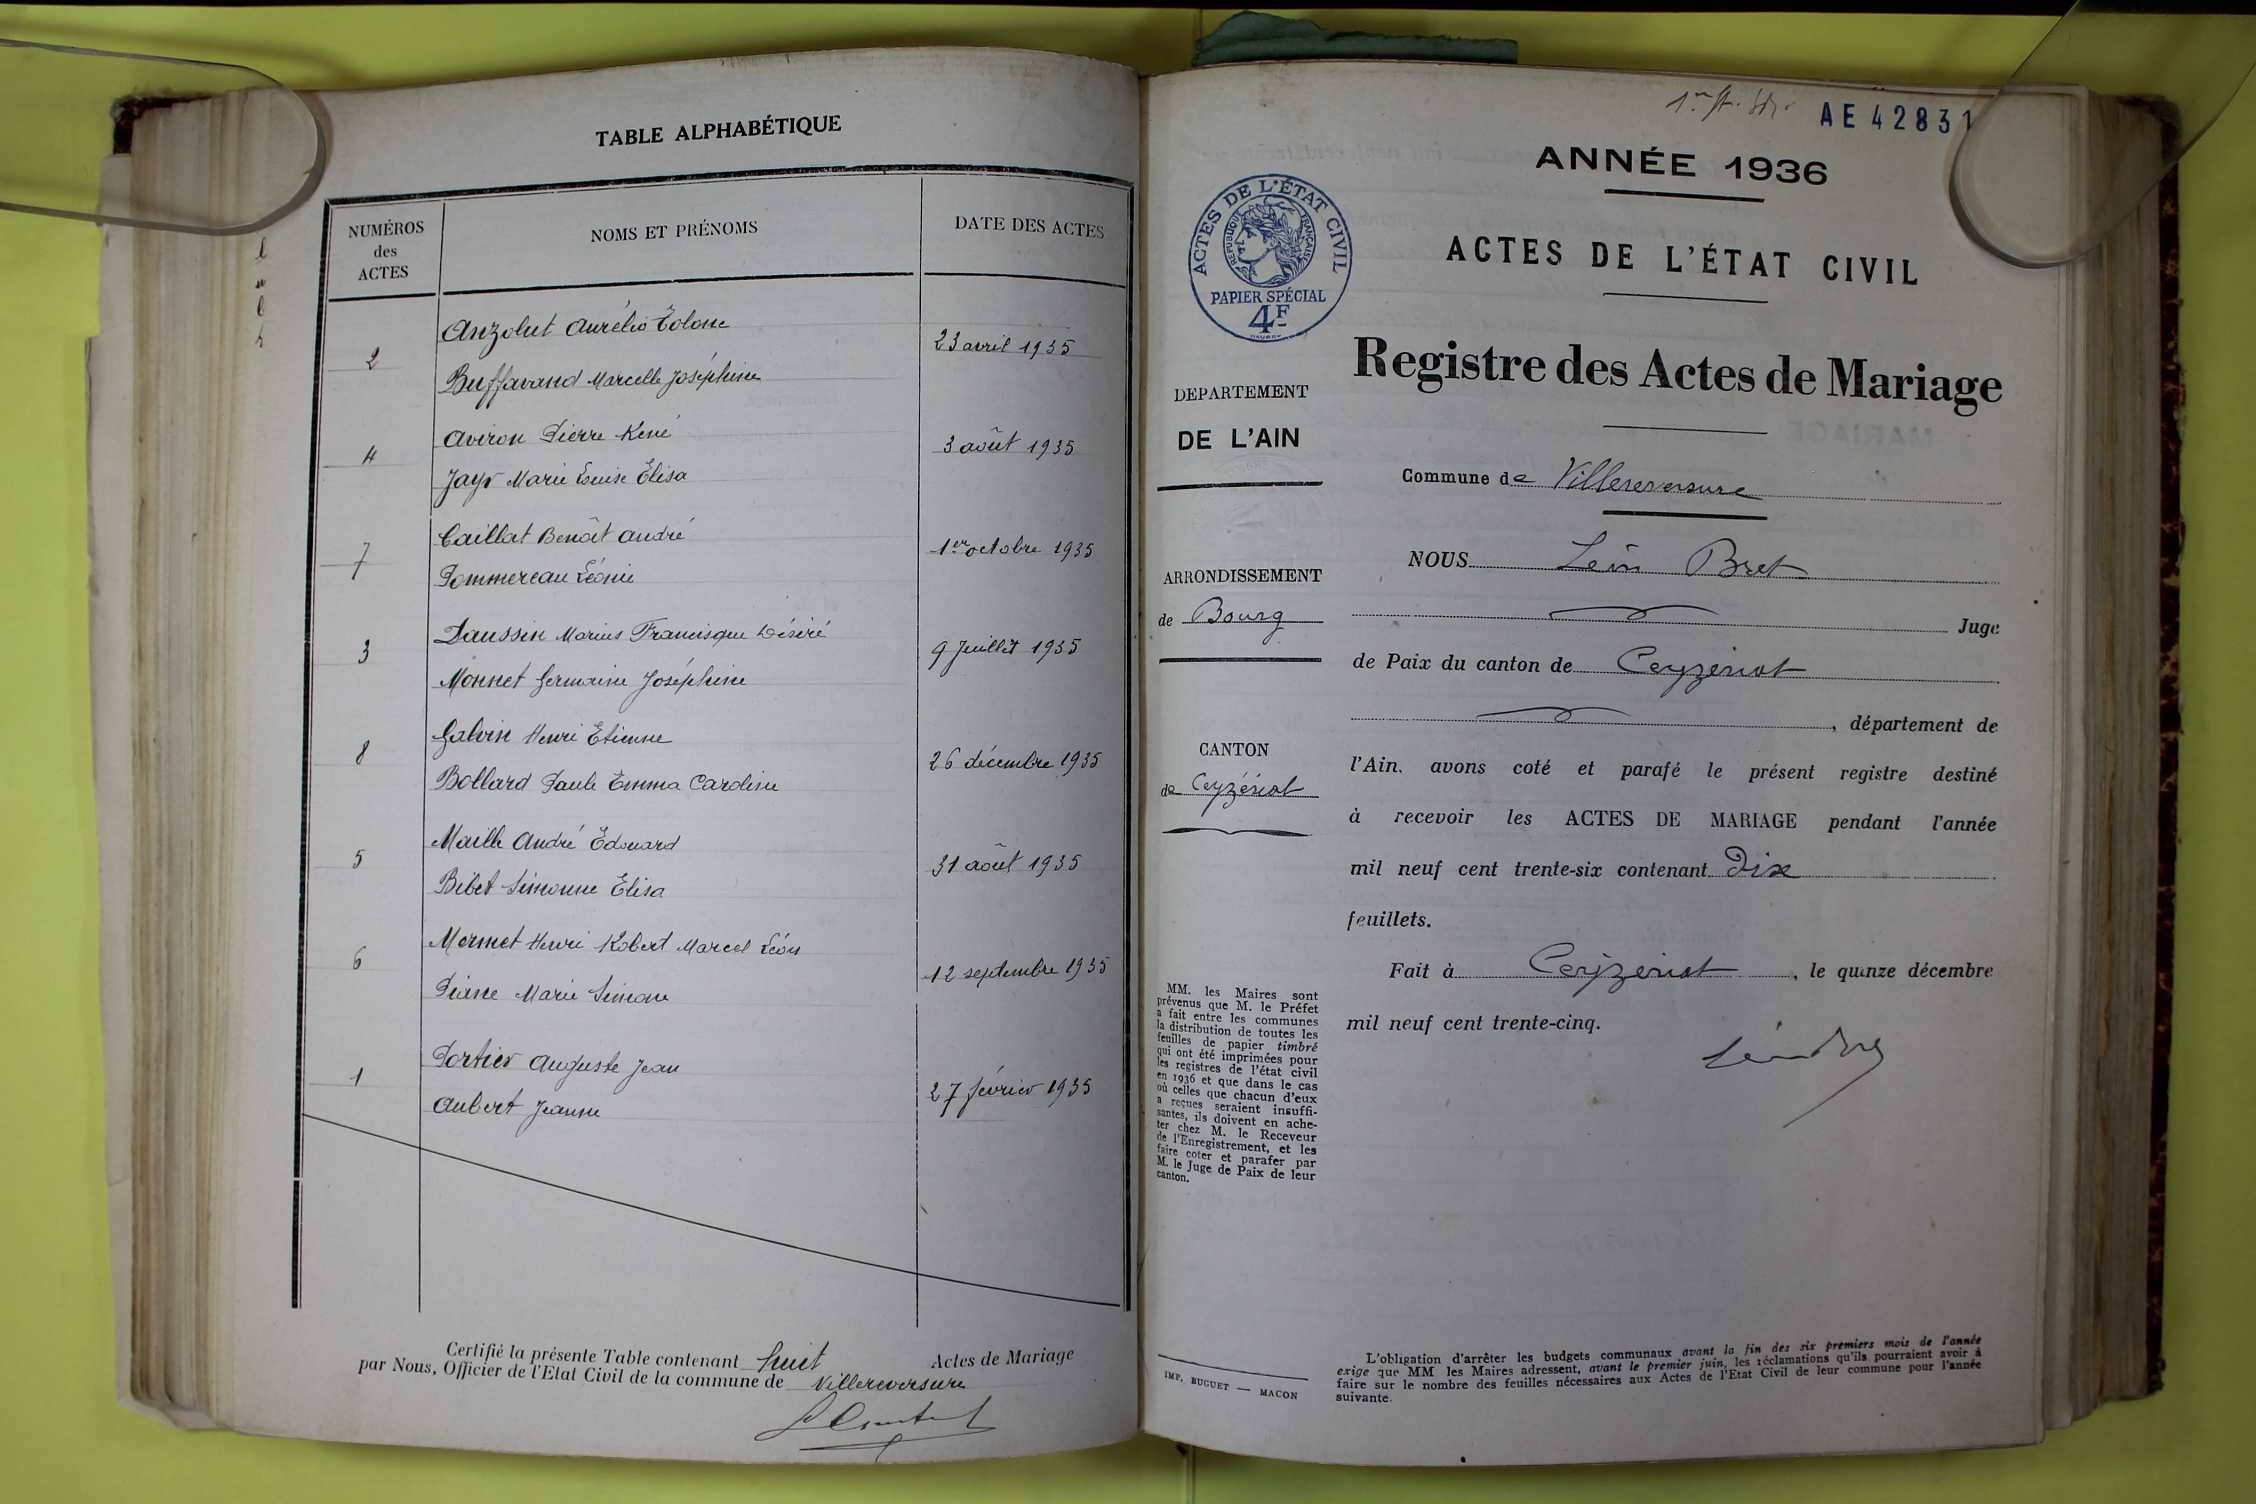 TABLE ALPHABÉTIQUE
NUMÉROS
des
ACTES
NOMS ET PRÉNOMS
DATE DES ACTES
Anzolut Aurélio
2
23 avril 1935
Buffavand Marcelle Joséphine
Aviron Pierre René
4
3 août 1935
Jayr Marie Louise Elisa
Caillat Benoît André
7
1er octobre 1935
Pommereau Léonie
Daussin Marius Francisque Désiré
3
9 Juillet 1935
Monnet Germaine Joséphine
Galvin Henri Etienne
8
26 décembre 1935
Bollard Paule Emma Caroline
Maille André Edouard
5
31 août 1935
Bibet Simonne Elisa
Mermet Henri Robert Marcel Léon
6
12 septembre 1935
Piane Marie Simone
Portier Auguste Jean
1
27 février 1935
Aubert Jeanne
Certifié la présente Table contenant huit Actes de Mariage
par Nous, Officier de l'Etat Civil de la commune de Villereversure
AE 42831
ANNÉE 1936
ACTES DE L'ÉTAT CIVIL
RÉPUBLIQUE FRANÇAISE
PAPIER SPÉCIAL
4F
ACTES DE L'ÉTAT CIVIL
Registre des Actes de Mariage
DEPARTEMENT
DE L'AIN
Commune de Villereversure
NOUS Léon Bret
ARRONDISSEMENT
de Bourg
Juge
de Paix du canton de Ceyzériat
, département de
CANTON
de Ceyzériat
l'Ain. avons coté et parafé le présent registre destiné
à recevoir les ACTES DE MARIAGE pendant l'année
mil neuf cent trente-six contenant Dix
feuillets.
Fait à Ceyzériat, le quinze décembre
mil neuf cent trente-cinq.
MM. les Maires sont
prévenus que M. le Préfet
a fait entre les communes
la distribution de toutes les
feuilles de papier timbré
qui ont été imprimées pour
les registres de l'état civil
en 1936 et que dans le cas
où celles que chacun d'eux
a reçues seraient insuffi-
santes, ils doivent en ache-
ter chez M. le Receveur
de l'Enregistrement, et les
faire coter et parafer par
M. le Juge de Paix de leur
canton.
IMP. BUGUET — MACON
L'obligation d'arrêter les budgets communaux avant la fin des six premiers mois de l'année
exige que MM les Maires adressent, avant le premier juin, les réclamations qu'ils pourraient avoir à
faire sur le nombre des feuilles nécessaires aux Actes de l'Etat Civil de leur commune pour l'année
suivante.